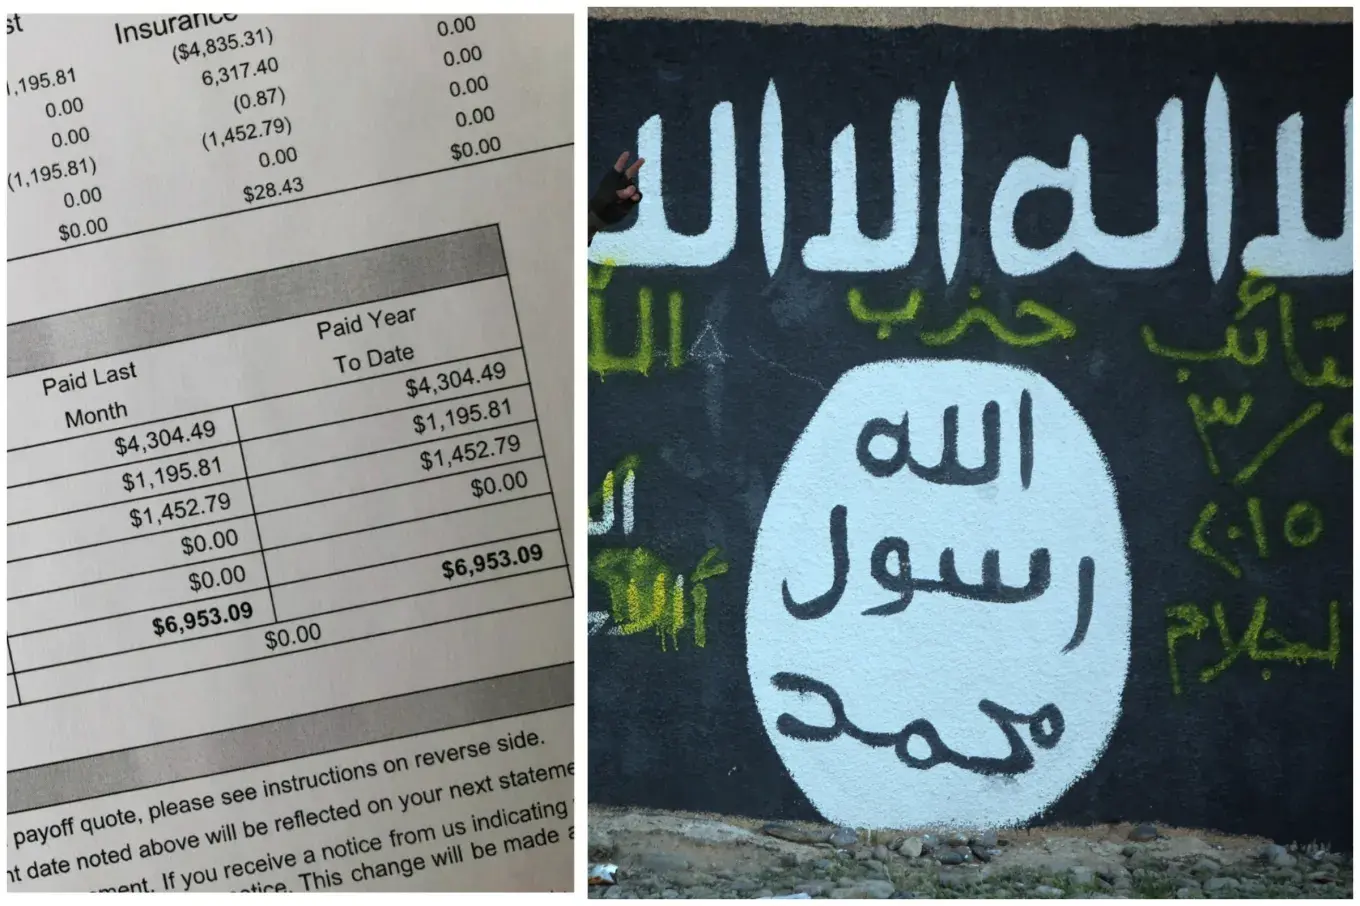 Insurance
1,195.81 ($4,835.31) 0.00
0.00 6,317.40 0.00
0.00 (0.87) 0.00
(1,195.81) (1,452.79) 0.00
0.00 0.00 $0.00
$0.00 $28.43
Paid Last Month Paid Year To Date
$4,304.49 $4,304.49
$1,195.81 $1,195.81
$1,452.79 $1,452.79
$0.00 $0.00
$0.00
$6,953.09 $6,953.09
$0.00
payoff quote, please see instructions on reverse side.
date noted above will be reflected on your next
If you receive a notice from us indicating
This change will be made
لا اله الا الله
كتائب حزب الله
٣/
٢٠١٥
الله
رسول
محمد